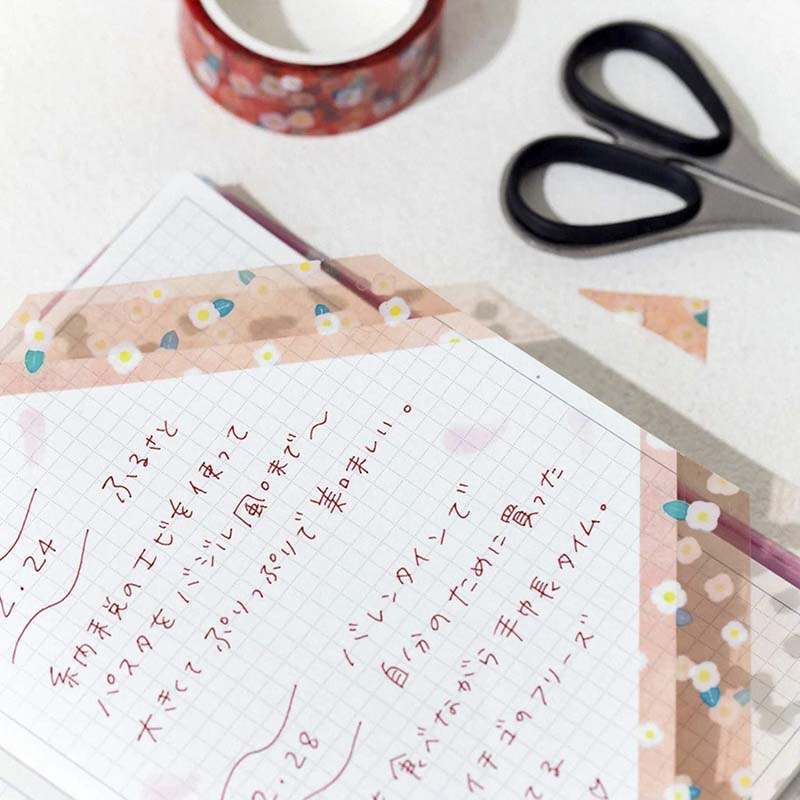 2.24
ふるさと
納税のエビを使って
パスタをバジル風味で〜
大きくてぷりっぷりで美味しい。
2.28
バレンタインで
自分のために買った
食べながら手帳タイム。
イチゴのフリーズ